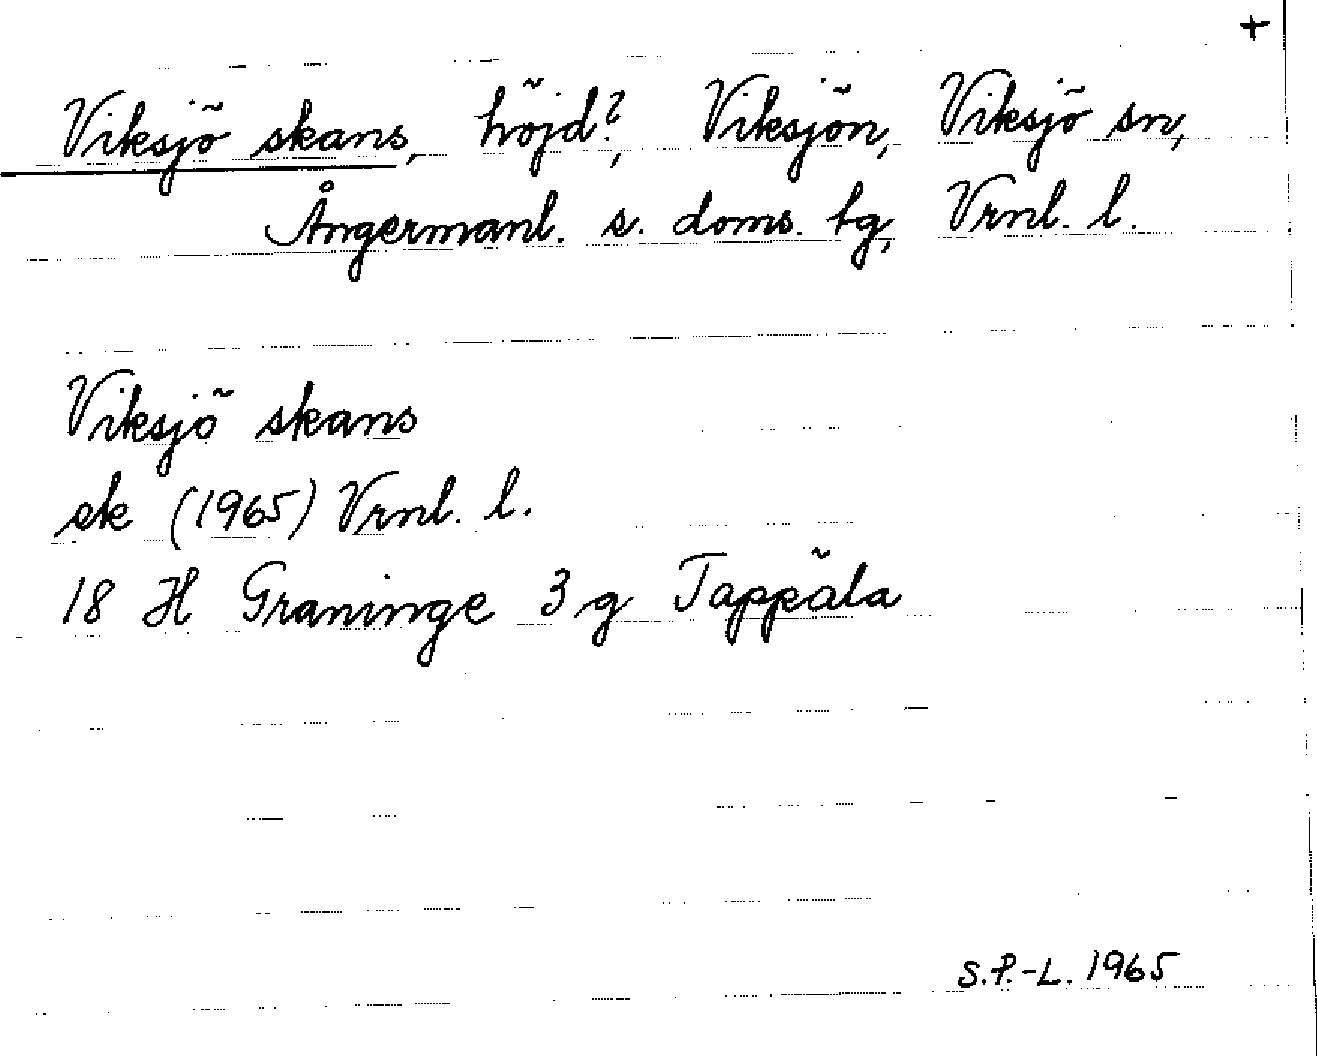 +
Viksjö skans, höjd?, Viksjön, Viksjö sn,
Ångermanl. s. doms. tg, Vrnl. l.
Viksjö skans
ek (1965) Vrnl. l.
18 H Graninge 3 g Tappäla
S.P.-L. 1965